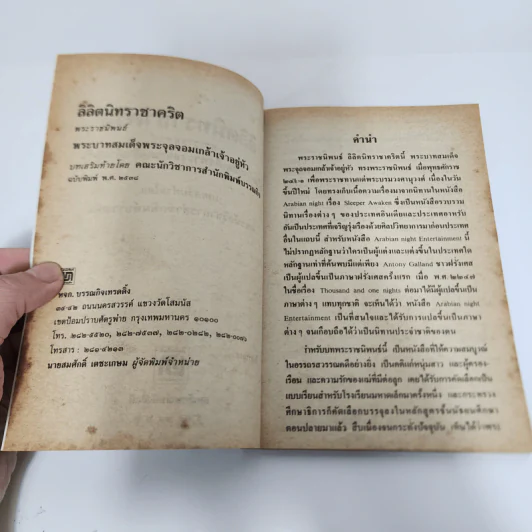 ลิลิตนิทราชาคริต
พระราชนิพนธ์
พระบาทสมเด็จพระจุลจอมเกล้าเจ้าอยู่หัว
บทเสริมท้ายโดย คณะนักวิชาการสำนักพิมพ์บรรณกิจ
ฉบับพิมพ์ พ.ศ. ๒๕๓๘
หจก. บรรณกิจเทรดดิ้ง
๓๔-๔๒ ถนนนครสวรรค์ แขวงวัดโสมนัส
เขตป้อมปราบศัตรูพ่าย กรุงเทพมหานคร ๑๐๑๐๐
โทร. ๒๘๒-๕๕๒๐, ๒๘๒-๗๕๓๗, ๒๘๒-๐๒๘๒,
โทรสาร : ๒๘๑-๕๒๑๓
นายสมศักดิ์ เตชะเกษม ผู้จัดพิมพ์จำหน่าย
คำนำ
พระราชนิพนธ์ ลิลิตนิทราชาคริตนี้ พระบาทสมเด็จ
พระจุลจอมเกล้าเจ้าอยู่หัว ทรงพระราชนิพนธ์ เมื่อพุทธศักราช
เพื่อพระราชทานแด่พระบรมวงศานุวงศ์ เนื่องในวัน
ขึ้นปีใหม่ โดยทรงเก็บเนื้อความเรื่องมาจากนิทานในหนังสือ
Arabian night เรื่อง Sleeper Awaken ซึ่งเป็นหนังสือรวบรวม
นิทานเรื่องต่าง ๆ ของประเทศอินเดียและประเทศอาหรับ
อันเป็นประเทศที่เจริญรุ่งเรืองด้วยศิลปวิทยาการมาก่อนประเทศ
อื่นในแถบนี้ สำหรับหนังสือ Arabian night Entertainment นี้
ไม่ปรากฏหลักฐานว่าใครเป็นผู้แต่งและแต่งขึ้นในประเทศใด
หลักฐานเท่าที่ค้นพบมีแต่เพียง Antony Galland ชาวฝรั่งเศส
เป็นผู้แปลขึ้นเป็นภาษาฝรั่งเศสครั้งแรก เมื่อ พ.ศ. ๒๒๔๗
ในชื่อเรื่อง Thousand and one nights ต่อมาได้มีผู้แปลขึ้นเป็น
ภาษาต่าง ๆ แทบทุกชาติ จะเห็นได้ว่า หนังสือ Arabian night
Entertainment เป็นที่สนใจและได้รับการแปลขึ้นเป็นภาษา
ต่าง ๆ จนเกือบถือได้ว่าเป็นนิทานประจำชาติของตน
สำหรับบทพระราชนิพนธ์นี้ เป็นหนังสือที่ให้ความสมบูรณ์
ในอรรถรสวรรณคดีอย่างยิ่ง เป็นคติแก่หนุ่มสาว และผู้ครอง
เรือน และความรักของแม่ที่มีต่อลูก เคยได้รับการคัดเลือกเป็น
แบบเรียนสำหรับโรงเรียนมหาดเล็กมาครั้งหนึ่ง และกระทรวง
ศึกษาธิการก็คัดเลือกบรรจุลงในหลักสูตรชั้นมัธยมศึกษา
ตอนปลายมาแล้ว สืบเนื่องจนกระทั่งปัจจุบัน